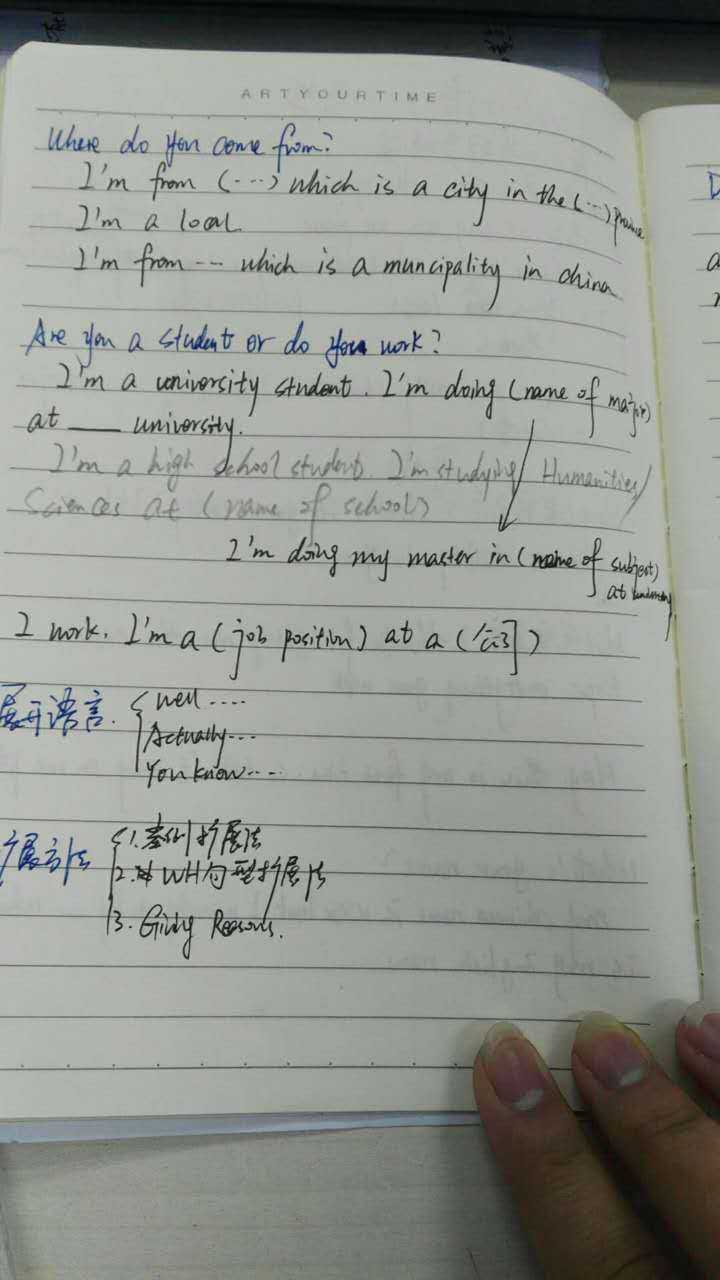 ARTYOURTIME
Where do you come from?
I'm from (...) which is a city in the (...) provice
I'm a local
I'm from --- which is a muncipality in china
Are you a student or do you work?
I'm a university student. I'm doing (name of major)
at ___ university.
I'm a high school student. I'm studying Humanities/
Sciences at (name of school)
I'm doing my master in (name of subject)
at
I work. I'm a (job position) at a (公司)
展开语言. { well ....
Actually...
You know....
扩展方法 { 1. 举例扩展法
2. WH句型扩展法
3. Giving Reasons.